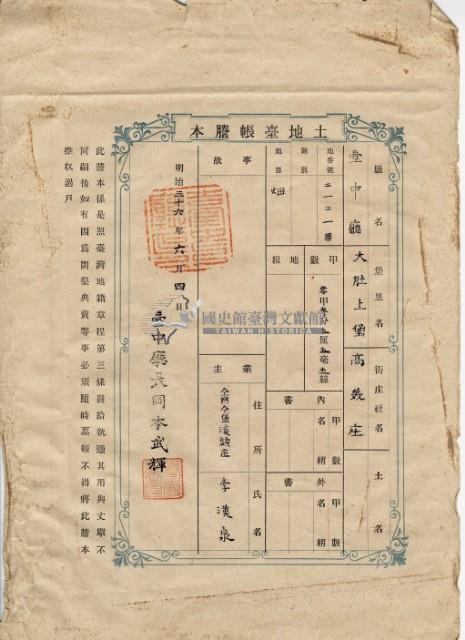 土地臺帳謄本
廳名
臺中廳
堡里名
大肚上堡
街庄社名
高美庄
土名
地番號
二一二一番
則別
地目
畑
甲數
地租
零甲
分
厘
毫
絲
內書
甲數
名稱
外書
甲數
名稱
事故
業主
住所
氏名
仝廳仝堡
庄
李漢泉
明治三十六年六月四日
臺中廳長岡本武輝
此謄本係是照臺灣地籍章程第三條發給就
其用與丈單不
同嗣後如有因爲開墾典賣等事必須隨時稟報不得將此謄本
推收過戶
國史館臺灣文獻館
TAIWAN HISTORICA